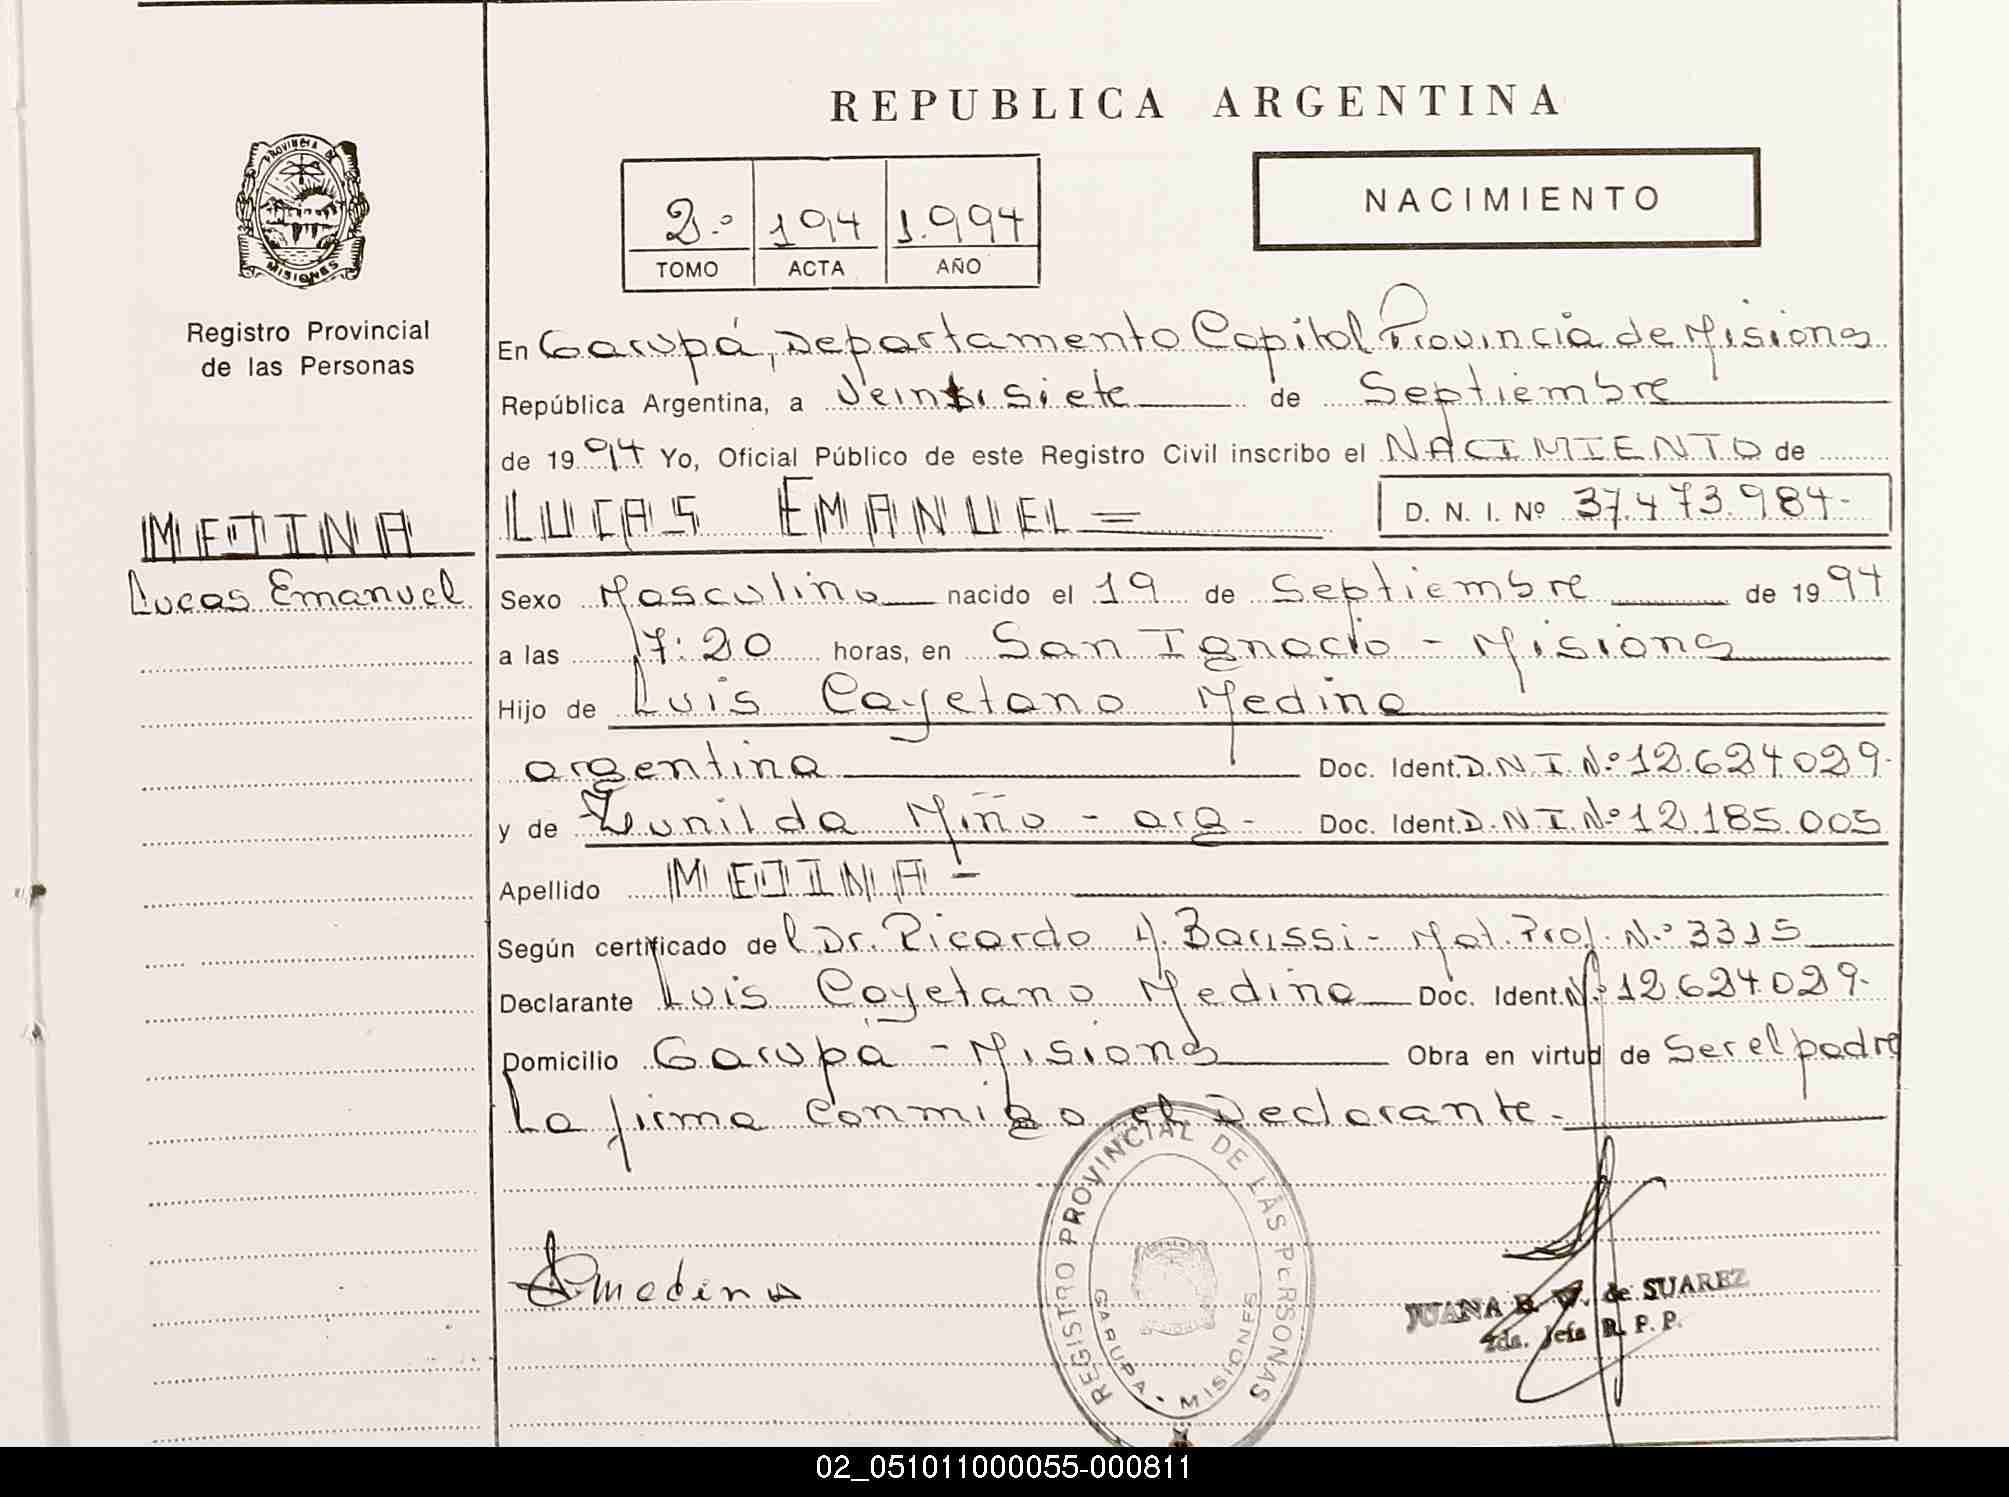 REPUBLICA ARGENTINA
PROVINCIA DE
MISIONES
Registro Provincial
de las Personas
2.º 194 1.994
TOMO ACTA AÑO
NACIMIENTO
En Garupá, Departamento Capital Provincia de Misiones
República Argentina, a Veintisiete de Septiembre
de 1994 Yo, Oficial Público de este Registro Civil inscribo el NACIMIENTO de
MEDINA
Lucas Emanuel
LUCAS EMANUEL = D. N. I. Nº 37.473.984-
Sexo Masculino nacido el 19 de Septiembre de 1994
a las 17:20 horas, en San Ignacio - Misiones
Hijo de Luis Cayetano Medina
argentina Doc. Ident. D.N.I. Nº 12.624.029-
y de Zunilda Miño - arg - Doc. Ident. D.N.I. Nº 12.185.005
Apellido MEDINA -
Según certificado del Dr. Ricardo A. Barissi - Mat. Prof. N.º 3315
Declarante Luis Cayetano Medina Doc. Ident. Nº 12.624.029-
Domicilio Garupá - Misiones Obra en virtud de Ser el padre
La firma conmigo el Declarante.-
REGISTRO PROVINCIAL DE LAS PERSONAS
GARUPA - MISIONES
Medina
JUANA de SUAREZ
2da. Jefa R. P. P.
02_051011000055-000811